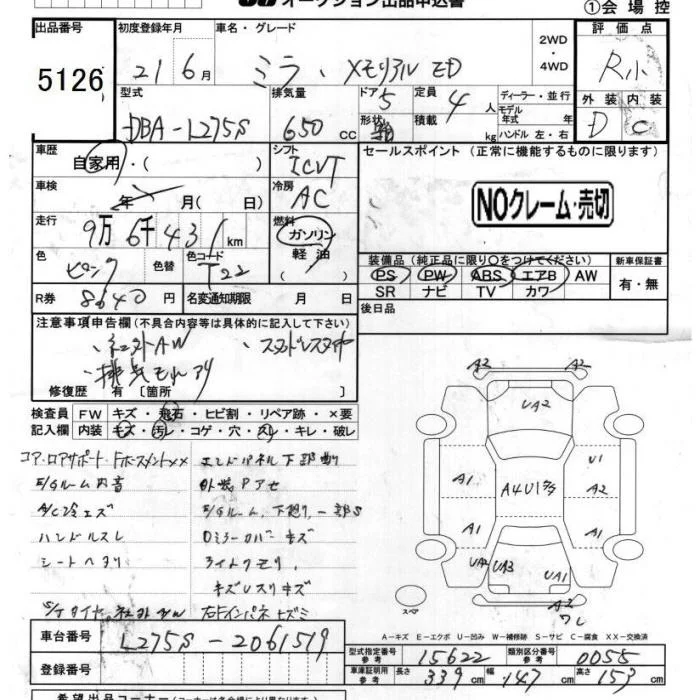 オークション出品申込書
①会場控
出品番号 初度登録年月 車名・グレード 2WD・4WD 評価点
5126 21 6月 ミラ、メモリアル ED R小
型式 排気量 ドア 定員 ディーラー・並行 外装 内装
DBA-L275S 650cc 5 4人 モデル年式 年 D C
形状 積載 kg ハンドル 左・右
車歴 自家用・( ) シフト ICVT セールスポイント (正常に機能するものに限ります)
車検 年 月( 日) 冷房 AC
NOクレーム・売切
走行 9万6千431km 燃料 ガソリン 軽油 ( )
色 ピンク 色替 色コード T22
装備品 (純正品に限り○をつけてください) 新車保証書
PS PW ABS エアB AW 有・無
SR ナビ TV カワ
R券 8640円 名変通知期限 月 日 後日品
注意事項申告欄 (不具合内容等は具体的に記入して下さい)
・社外AW スタッドレスタイヤ
・排気もれアリ
修復歴 有 〔箇所 〕
検査員 FW キズ・飛石・ヒビ割・リペア跡・×要
記入欄 内装 キズ・汚レ・コゲ・穴・スレ・キレ・破レ
コアロアサポート エンドパネル下部
E/Gルーム内音
A/C冷エズ E/Gルーム、下廻り、一部S
ハンドルスレ Dミラーカバーキズ
シートヘタリ ライトクモリ
キズUスリキズ
S/Tタイヤ
A2 A2
UA2
U1
A1 A4U1 A2
A1 A1
UA2 UA3 UA1
A2
ワレ
スペア
A-キズ E-エクボ U-凹み W-補修跡 S-サビ C-腐食 XX-交換済
車台番号 L275S-2061519
型式指定番号 参考 15622 類別区分番号 参考 0055
登録番号 車庫証明用 参考 長さ 339 幅 147 高さ 153
希望出品コーナー